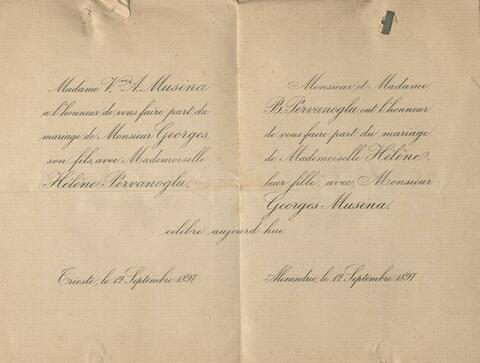 Madame Vve A. Musina
a l'honneur de vous faire part du
mariage de Monsieur Georges,
son fils, avec Mademoiselle
Hélène Pervanoglu,
Monsieur et Madame
B. Pervanoglu ont l'honneur
de vous faire part du mariage
de Mademoiselle Hélène,
leur fille, avec Monsieur
Georges Musina,
célébré aujourd'hui
Trieste, le 12 Septembre 1897
Alexandrie, le 12 Septembre 1897